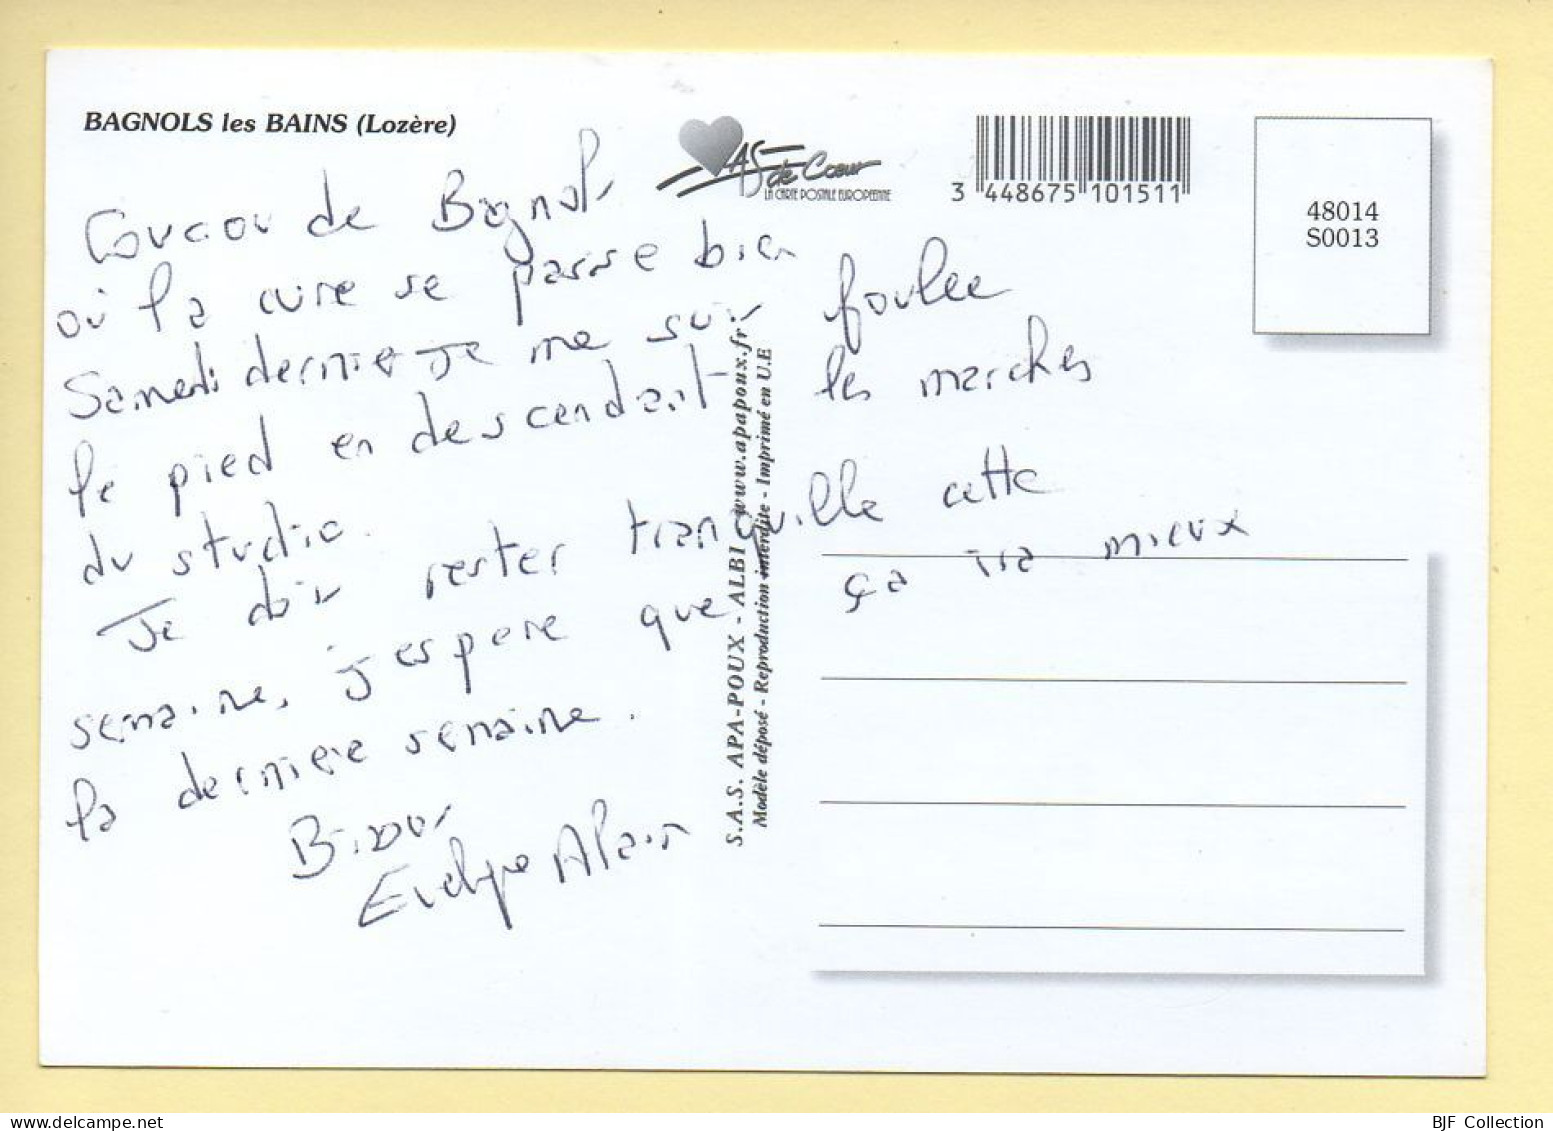 BAGNOLS les BAINS (Lozère)
AS de Cœur
LA CARTE POSTALE EUROPEENNE
3 448675 101511
48014
S0013
Coucou de Bagnols
où la cure se passe bien
Samedi dernier je me suis foulée
le pied en descendant les marches
du studio.
Je dois rester tranquille cette
semaine, j'espere que ça ira mieux
la derniere semaine.
Bisous
Evelyne Alain
S.A.S. APA-POUX - ALBI - www.apapoux.fr
Modèle déposé - Reproduction interdite - Imprimé en U.E
BJF Collection